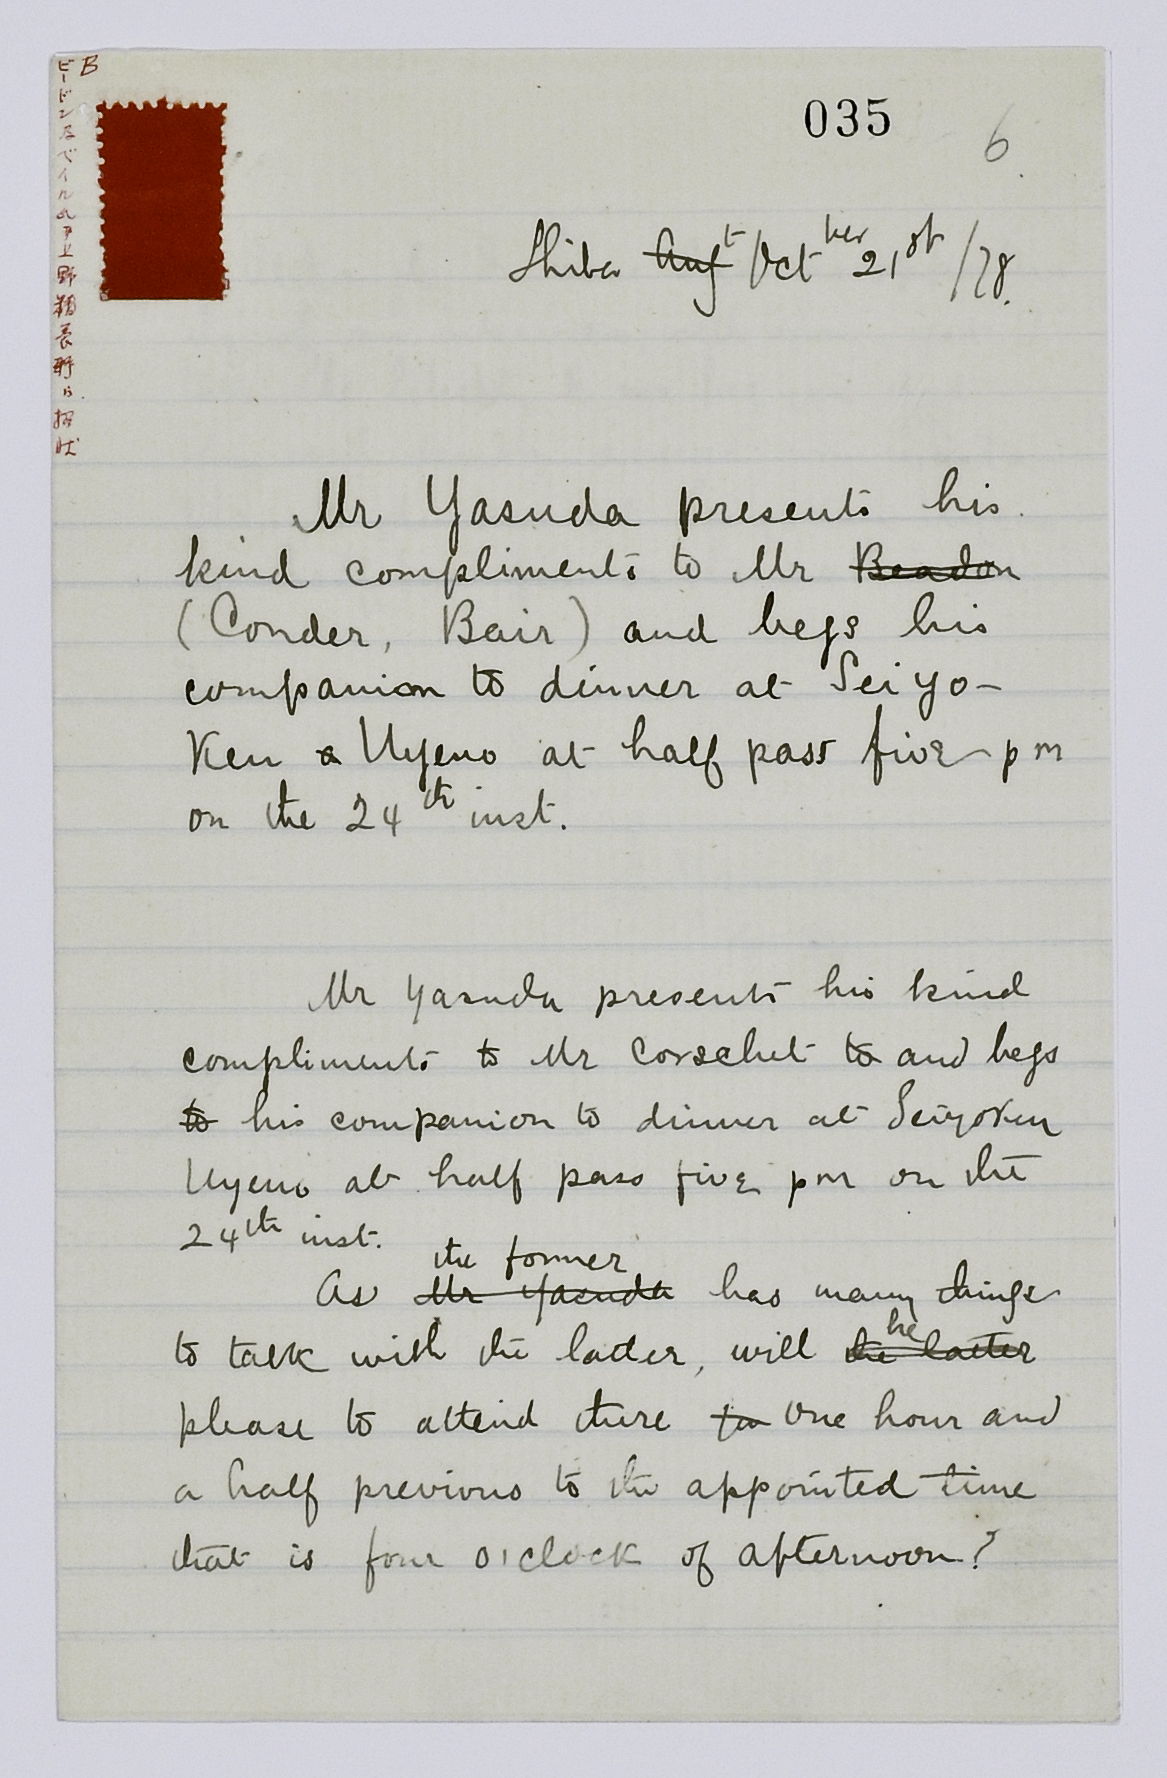 B
035
6
Shiba Augt Octber 21st /78.
Mr Yasuda presents his
kind compliments to Mr Beadon
(Conder, Bair) and begs his
companion to dinner at Seiyo-
Ken a Uyeno at half pass five pm
on the 24th inst.
Mr Yasuda presents his kind
compliments to Mr Corschet to and begs
to his companion to dinner at Seiyoken
Uyeno at half pass five pm on the
24th inst.
the former
As Mr Yasuda has many things
he
to talk with the latter, will the latter
please to attend there for one hour and
a half previous to the appointed time
that is four o'clock of afternoon?